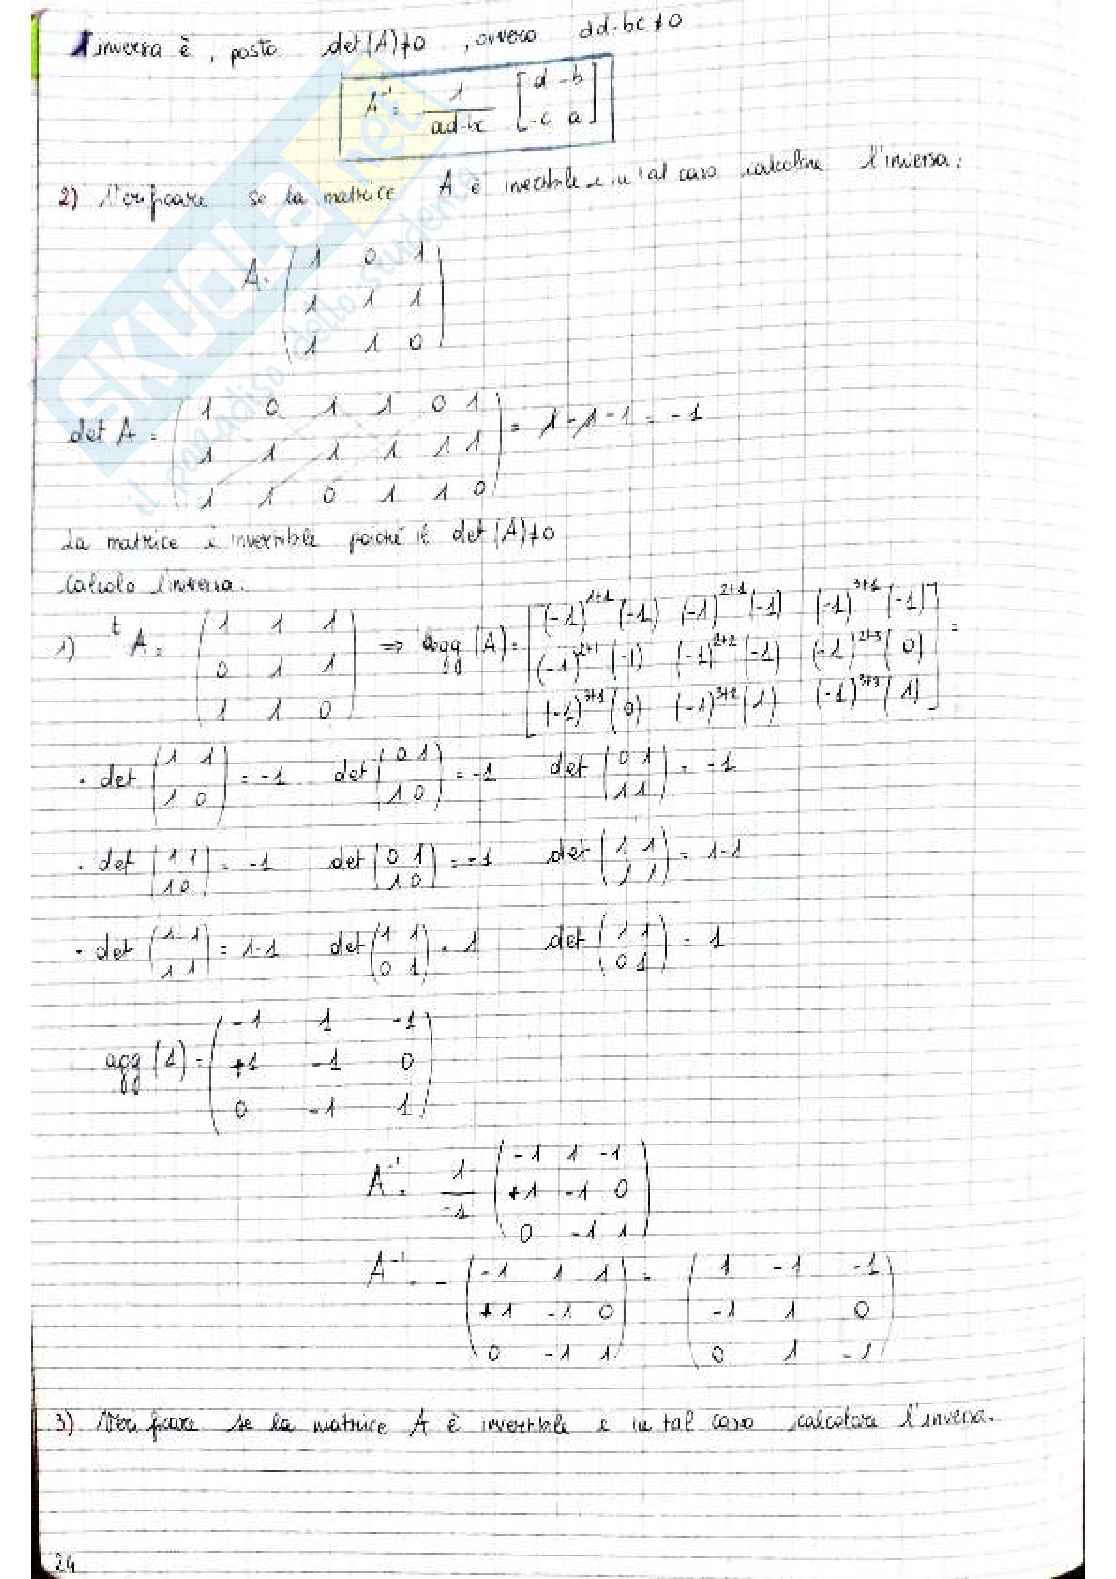 l'inversa è, posto det(A)≠0, ovvero ad-bc≠0
A⁻¹ = 1/(ad-bc) [d -b
-c a]
2) Verificare se la matrice A è invertibile e in tal caso calcolare l'inversa:
A = (1 0 1
1 1 1
1 1 0)
det A = (1 0 1 1 0 1
1 1 1 1 1 1
1 1 0 1 1 0) = 1-1-1 = -1
La matrice è invertibile poiché è det(A)≠0
Calcolo l'inversa.
1) ᵗA = (1 1 1
0 1 1
1 1 0) ⇒ agg(A) = [(-1)¹⁺¹(-1) (-1)²⁺¹(-1) (-1)³⁺¹(-1)
(-1)²⁺¹(-1) (-1)²⁺²(-1) (-1)²⁺³(0)
(-1)³⁺¹(0) (-1)³⁺²(1) (-1)³⁺³(1)] =
· det (1 1
1 0) = -1 det (0 1
1 0) = -1 det (0 1
1 1) = -1
· det (1 1
1 0) = -1 det (0 1
1 0) = -1 det (1 1
1 1) = 1-1
· det (1 1
1 1) = 1-1 det (1 1
0 1) = 1 det (1 1
0 1) = 1
agg(A) = (-1 1 -1
+1 -1 0
0 -1 1)
A⁻¹ = 1/-1 (-1 1 -1
+1 -1 0
0 -1 1)
A⁻¹ = - (-1 1 1
+1 -1 0
0 -1 1) = (1 -1 -1
-1 1 0
0 1 -1)
3) Verificare se la matrice A è invertibile e in tal caso calcolare l'inversa.
24
SKUOLA.net
il paradiso dello studente